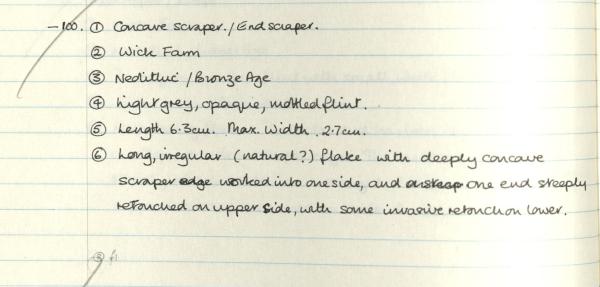 —100. ① Concave scraper./End scraper.
② Wick Farm
③ Neolithic / Bronze Age
④ Light grey, opaque, mottled flint.
⑤ Length 6.3cm. Max. Width 2.7cm.
⑥ Long, irregular (natural?) flake with deeply concave
scraper edge worked into one side, and one end steeply
retouched on upper side, with some invasive retouch on lower.